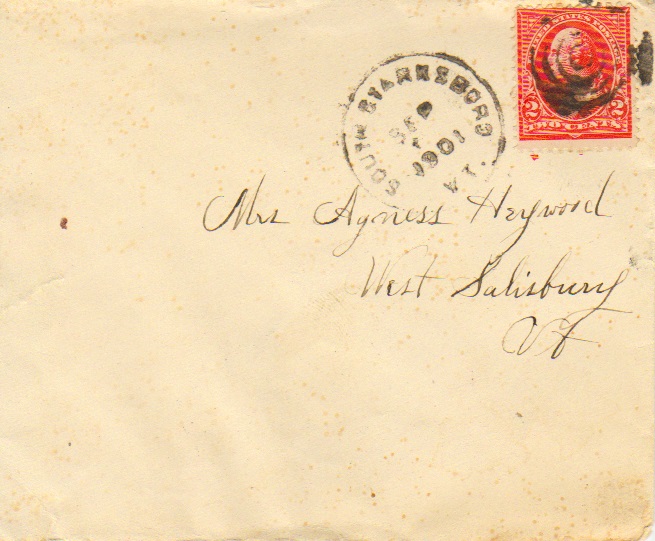 UNITED STATES POSTAGE
2 2
TWO CENTS
SOUTH STARKSBORO
VT.
SEP
1901
Mrs Agness Heywood
West Salisbury
Vt